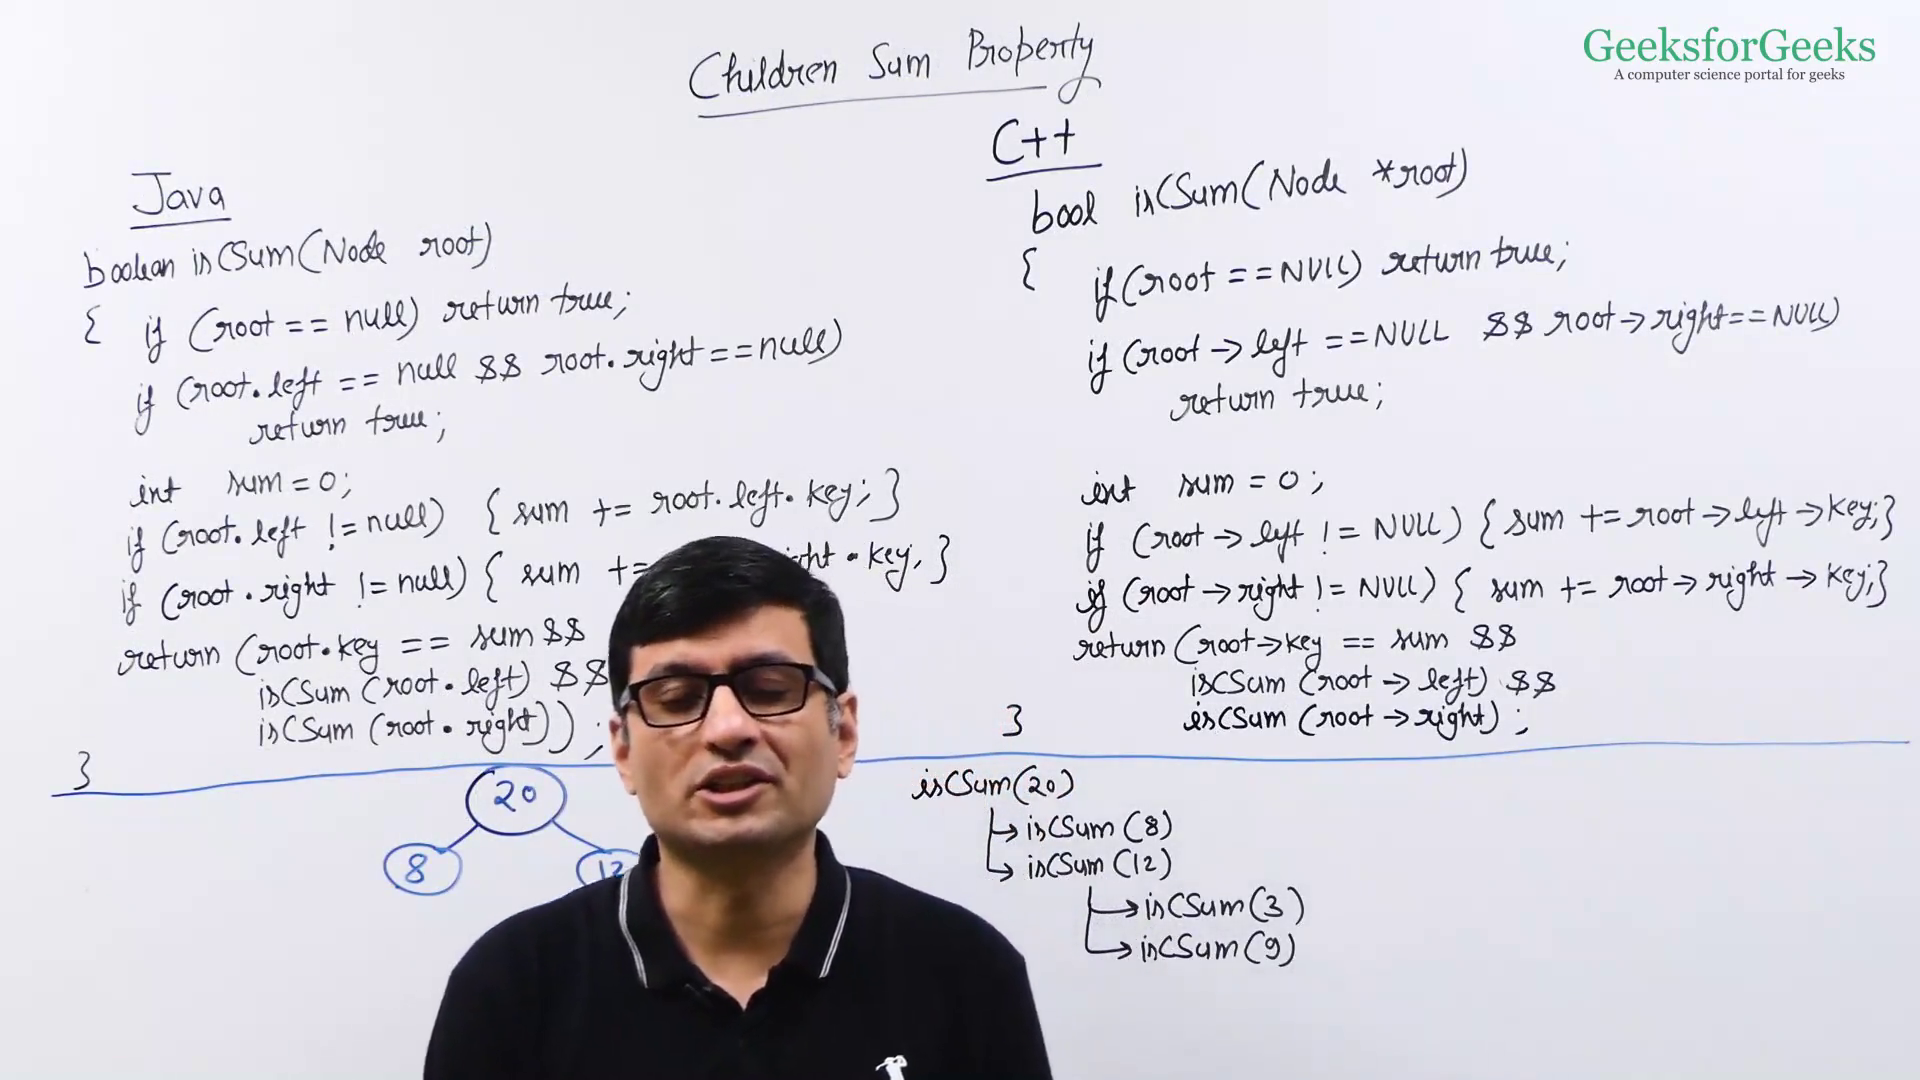 GeeksforGeeks
A computer science portal for geeks
Children Sum Property
Java
boolean isCSum(Node root)
{ if (root == null) return true;
if (root.left == null && root.right==null)
return true;
int sum=0;
if (root.left != null) {sum += root.left.key;}
if (root.right != null) { sum += ght.key;}
return (root.key == sum &&
isCSum (root.left) &&
isCSum (root.right));
}
C++
bool isCSum(Node *root)
{ if(root ==NULL) return true;
if (root→left ==NULL && root→right==NULL)
return true;
int sum = 0;
if (root→left != NULL) {sum +=root→left→key;}
if (root→right != NULL) { sum += root→right→key;}
return (root→key == sum &&
isCSum (root→left) &&
isCSum (root→right);
}
20
8
12
isCSum(20)
isCSum(8)
isCSum(12)
isCSum(3)
isCSum(9)